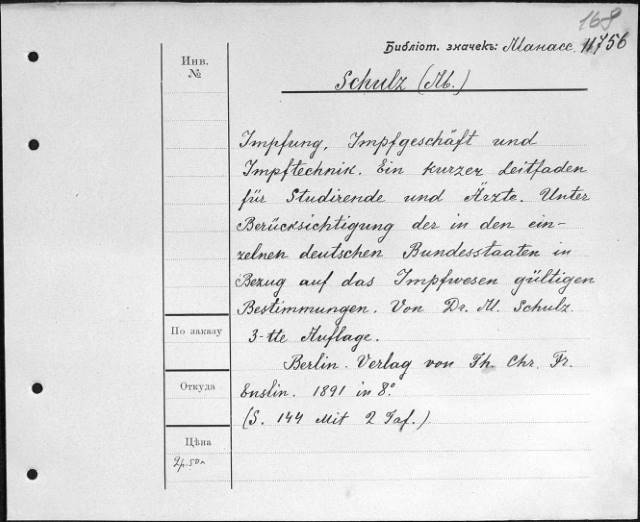 168
Библіот. значекъ: Манасс. 11756
Инв.
№
Schulz (M.)
Impfung, Impfgeschäft und
Impftechnik. Ein kurzer Leitfaden
für Studirende und Ärzte. Unter
Berücksichtigung der in den ein-
zelnen deutschen Bundesstaaten in
Bezug auf das Impfwesen gültigen
Bestimmungen. Von Dr. M. Schulz
3-tte Auflage.
Berlin. Verlag von Th. Chr. Fr.
Enslin. 1891 in 8°.
(S. 144 Mit 2 Taf.)
По заказу
Откуда
Цѣна
2р. 50к